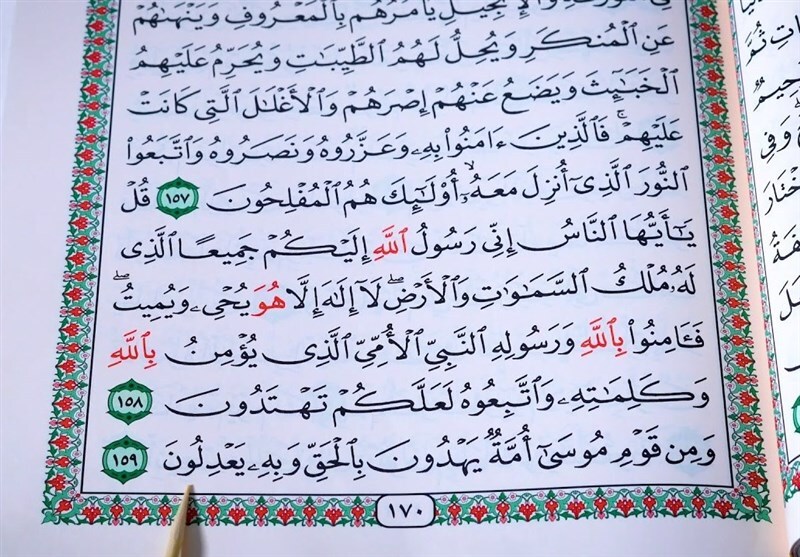 وَٱلۡإِنجِيلِ يَأۡمُرُهُم بِٱلۡمَعۡرُوفِ وَيَنۡهَىٰهُمۡ
عَنِ ٱلۡمُنكَرِ وَيُحِلُّ لَهُمُ ٱلطَّيِّبَٰتِ وَيُحَرِّمُ عَلَيۡهِمُ
ٱلۡخَبَٰٓئِثَ وَيَضَعُ عَنۡهُمۡ إِصۡرَهُمۡ وَٱلۡأَغۡلَٰلَ ٱلَّتِي كَانَتۡ
عَلَيۡهِمۡۚ فَٱلَّذِينَ ءَامَنُواْ بِهِۦ وَعَزَّرُوهُ وَنَصَرُوهُ وَٱتَّبَعُواْ
ٱلنُّورَ ٱلَّذِيٓ أُنزِلَ مَعَهُۥٓۙ أُوْلَٰٓئِكَ هُمُ ٱلۡمُفۡلِحُونَ ١٥٧ قُلۡ
يَٰٓأَيُّهَا ٱلنَّاسُ إِنِّي رَسُولُ ٱللَّهِ إِلَيۡكُمۡ جَمِيعًا ٱلَّذِي
لَهُۥ مُلۡكُ ٱلسَّمَٰوَٰتِ وَٱلۡأَرۡضِۖ لَآ إِلَٰهَ إِلَّا هُوَ يُحۡيِۦ وَيُمِيتُۖ
فَـَٔامِنُواْ بِٱللَّهِ وَرَسُولِهِ ٱلنَّبِيِّ ٱلۡأُمِّيِّ ٱلَّذِي يُؤۡمِنُ بِٱللَّهِ
وَكَلِمَٰتِهِۦ وَٱتَّبِعُوهُ لَعَلَّكُمۡ تَهۡتَدُونَ ١٥٨
وَمِن قَوۡمِ مُوسَىٰٓ أُمَّةٌ يَهۡدُونَ بِٱلۡحَقِّ وَبِهِۦ يَعۡدِلُونَ ١٥٩
١٧٠